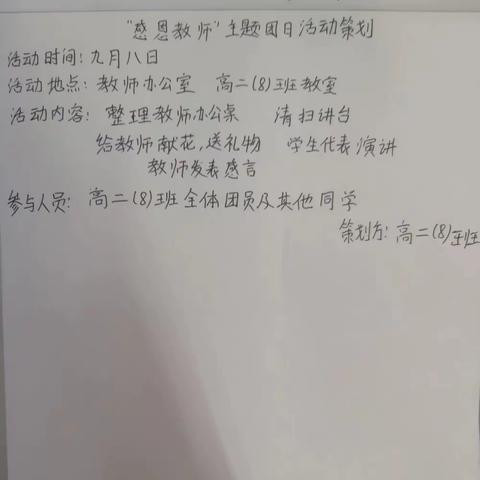 "感恩教师"主题团日活动策划
活动时间：九月八日
活动地点：教师办公室 高二(8)班教室
活动内容：整理教师办公桌 清扫讲台
给教师献花，送礼物 学生代表演讲
教师发表感言
参与人员：高二(8)班全体团员及其他同学
策划方：高二(8)班